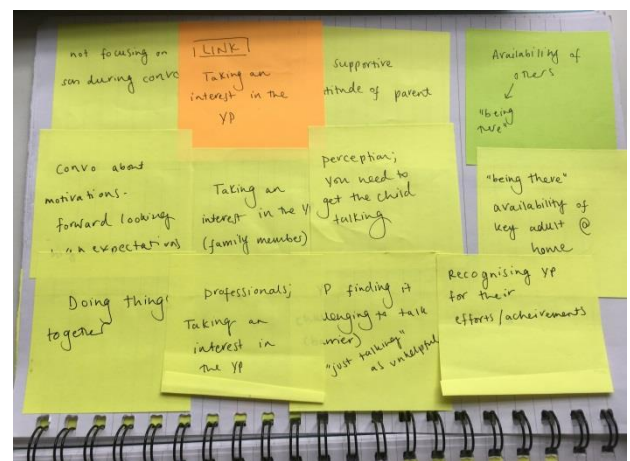 not focusing on
son during convo
LINK
Taking an
interest in the
YP
supportive
titude of parent
Availability of
others
"being
there"
Convo about
motivations-
forward looking
expectations
Taking an
interest in the Y
(family member)
perception;
you need to
get the child
talking
"being there"
availability of
key adult @
home
Doing things
together
professionals;
Taking an
interest in
the YP
P finding it
lenging to talk
rrier)
"just talking"
as unhelpful
Recognising YP
for their
efforts/acheivements